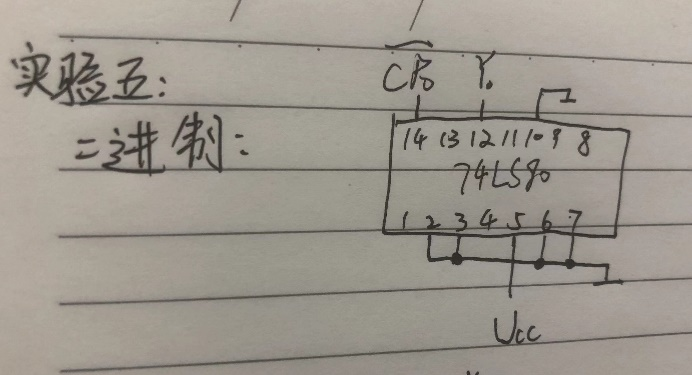 实验五:
二进制:
CP₀ Y₀
14 13 12 11 10 9 8
74LS90
1 2 3 4 5 6 7
Ucc